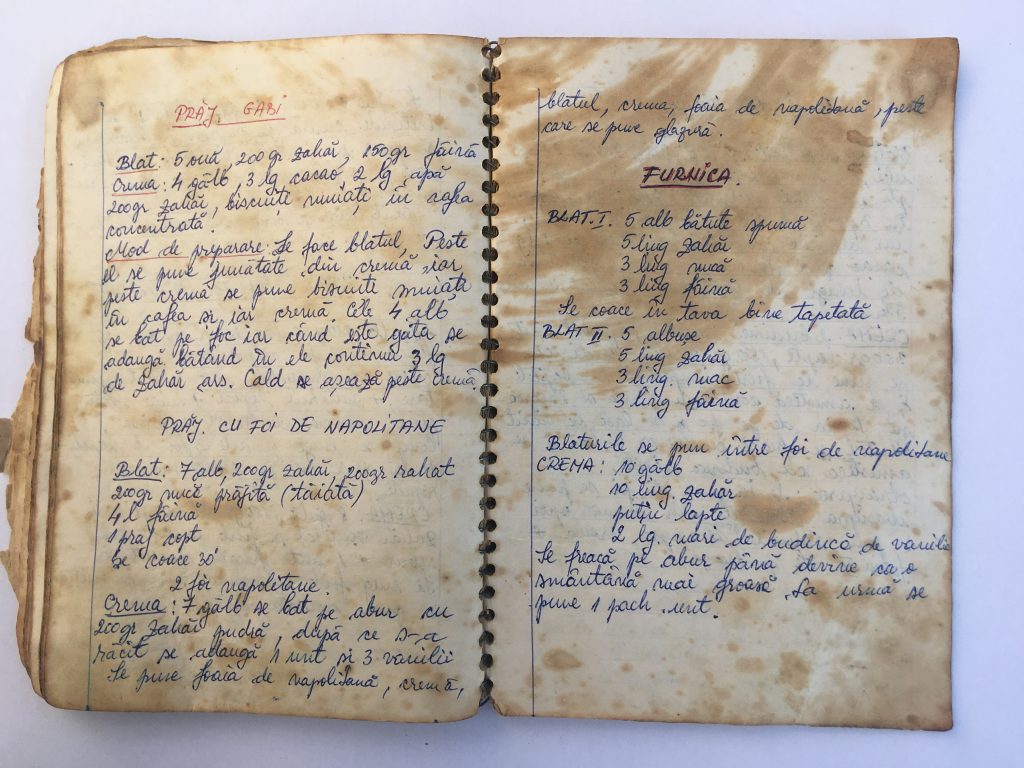 PRĂJ. GABI
Blat: 5 ouă, 200gr zahăr, 250gr făină
Crema: 4 gălb, 3 lg cacao, 2 lg apă
200gr zahăr, biscuiți muiați în cafea
concentrată.
Mod de preparare: Se face blatul, Peste
el se pune jumătate din cremă iar
peste cremă se pune biscuite muiata
în cafea și iar cremă. Cele 4 alb,
se bat pe foc iar când este gata se
adaugă bătând în ele continuu 3 lg
de zahăr ars. Cald se așează peste cremă.
PRĂJ. CU FOI DE NAPOLITANE
Blat: 7 alb, 200gr zahăr, 200gr rahat
200gr nucă prăjită (tăiată)
4 l făină
1 praf copt
Se coace 30'
2 foi napolitane.
Crema: 7 gălb se bat pe abur cu
200gr zahăr pudră, după ce s-a
răcit se adaugă 1 unt și 3 vanilii
Se pune foaia de napolitană, cremă,
blatul, crema, foaia de napolitană, peste
care se pune glazură.
FURNICA.
BLAT. I. 5 alb bătute spumă
5 ling zahăr
3 ling nucă
3 ling făină
Se coace în tava bine tapetată
BLAT II. 5 albușe
5 ling zahăr
3 ling. mac
3 ling făină
Blaturile se pun între foi de napolitane
CREMA: 10 gălb
10 ling. zahăr
puțin lapte
2 lg. mari de budincă de vanilie
Se freacă pe abur până devine ca o
smântână mai groasă. La urmă se
pune 1 pach. unt.